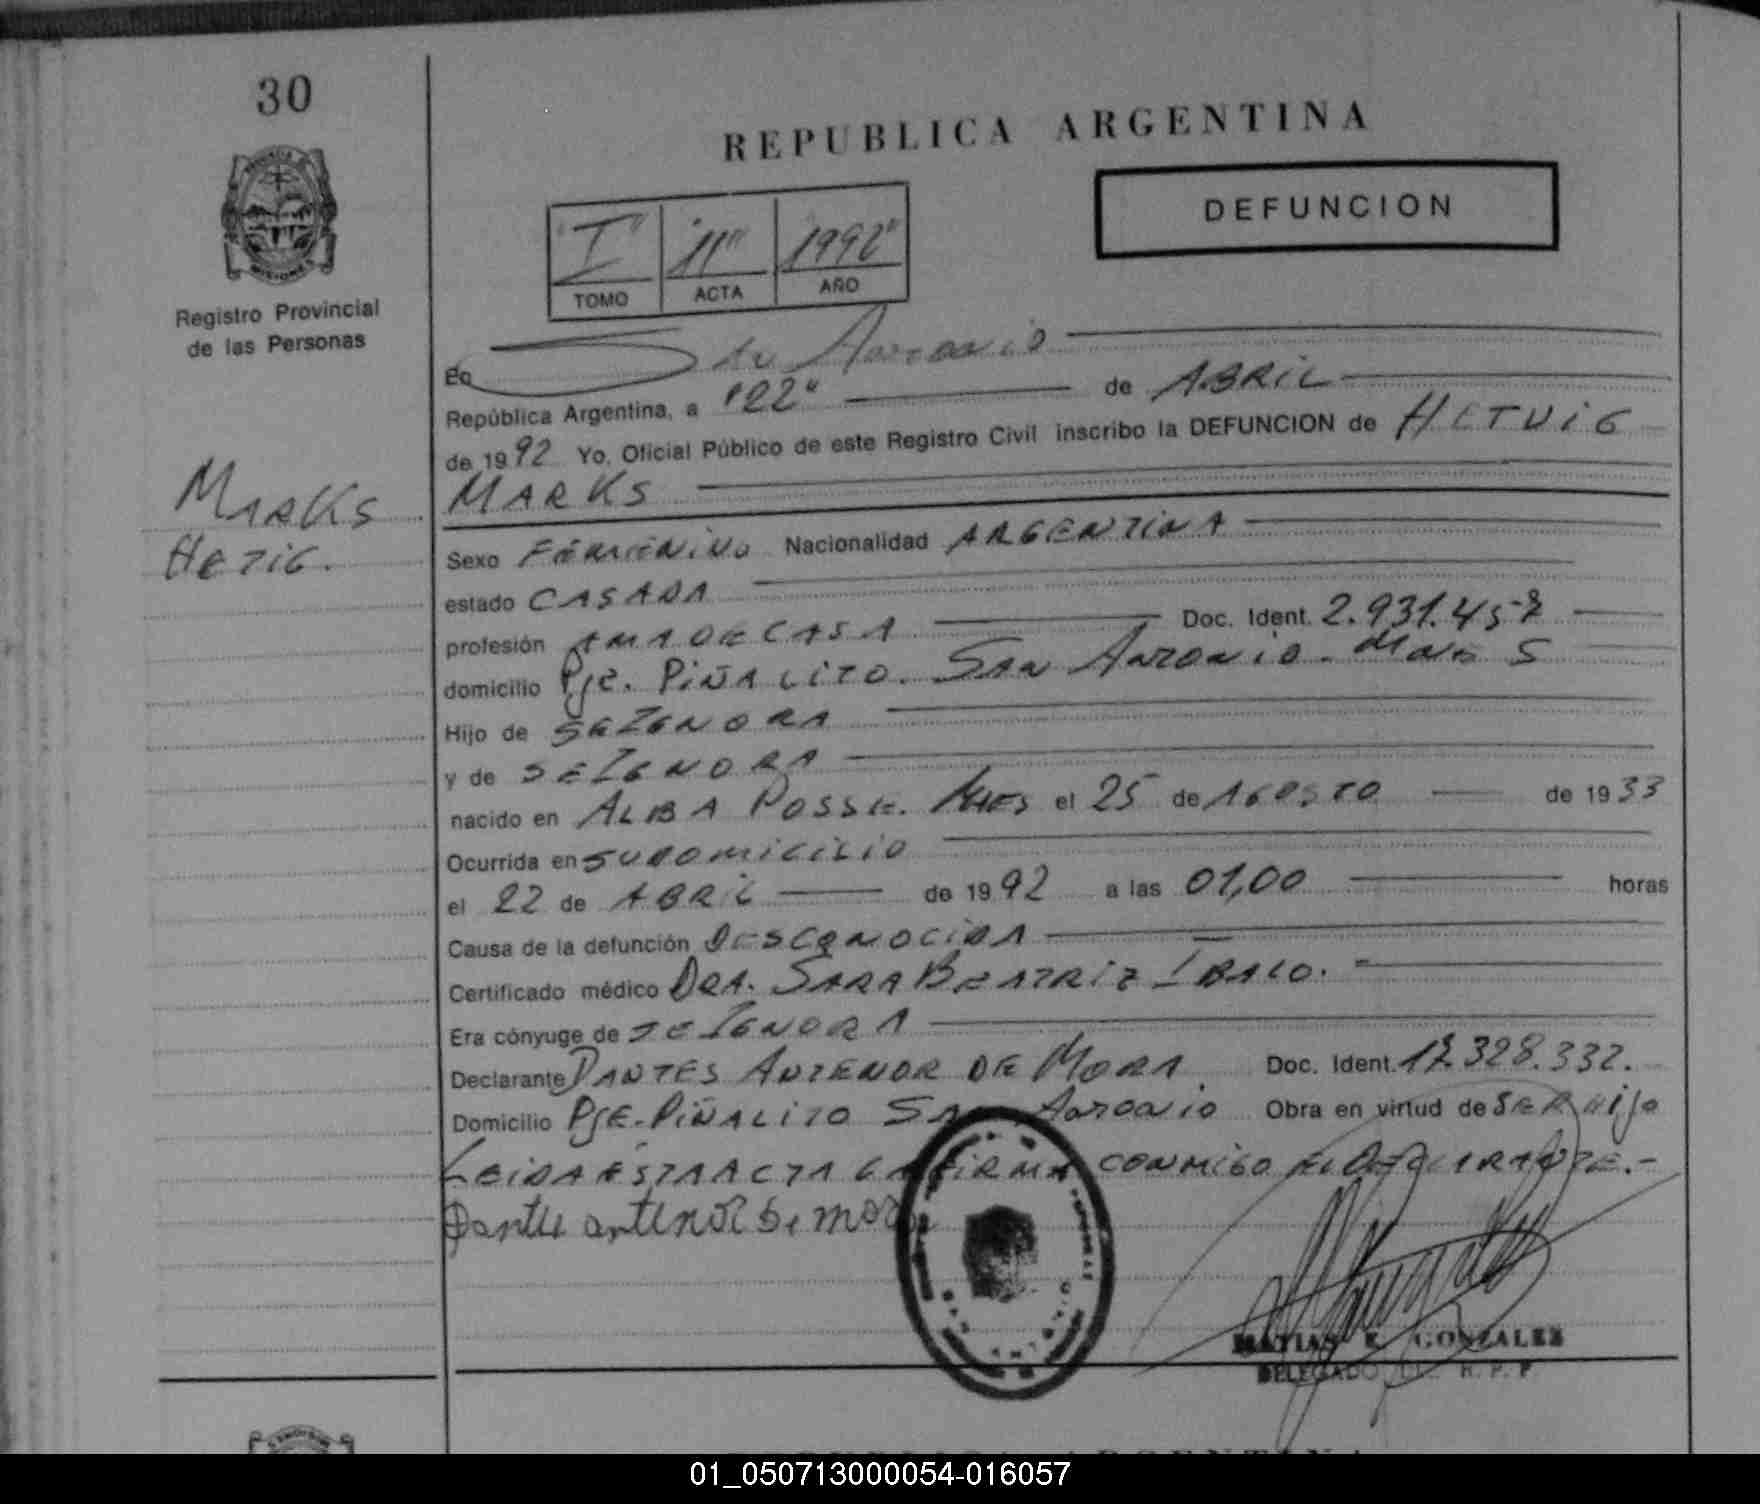 30
REPUBLICA ARGENTINA
DEFUNCION
"I" "11" "1992"
TOMO ACTA AÑO
Registro Provincial
de las Personas
MARKS
HETIG.
En San Antonio
República Argentina, a "22" de ABRIL
de 1992 Yo, Oficial Público de este Registro Civil inscribo la DEFUNCION de HETVIG
MARKS
Sexo FEMENINO Nacionalidad ARGENTINA
estado CASADA
profesión AMA DE CASA Doc. Ident. 2.931.457
domicilio Pje. PIÑALITO. SAN ANTONIO - Mnes
Hijo de SE IGNORA
y de SE IGNORA
nacido en ALBA POSSE. Mnes el 25 de AGOSTO de 1933
Ocurrida en SU DOMICILIO
el 22 de ABRIL de 1992 a las 01,00 horas
Causa de la defunción DESCONOCIDA
Certificado médico DRA. SARA BEATRIZ IBALO.
Era cónyuge de SE IGNORA
Declarante DANTES ANTENOR DE MORA Doc. Ident. 17.328.332.
Domicilio PJE. PIÑALITO SAN ANTONIO Obra en virtud de SER HIJO
LEIDA ESTA ACTA LA FIRMA CONMIGO EL DECLARANTE.-
Dantes antenor De mora
MATIAS E. GONZALEZ
DELEGADO R. P. P
01_050713000054-016057